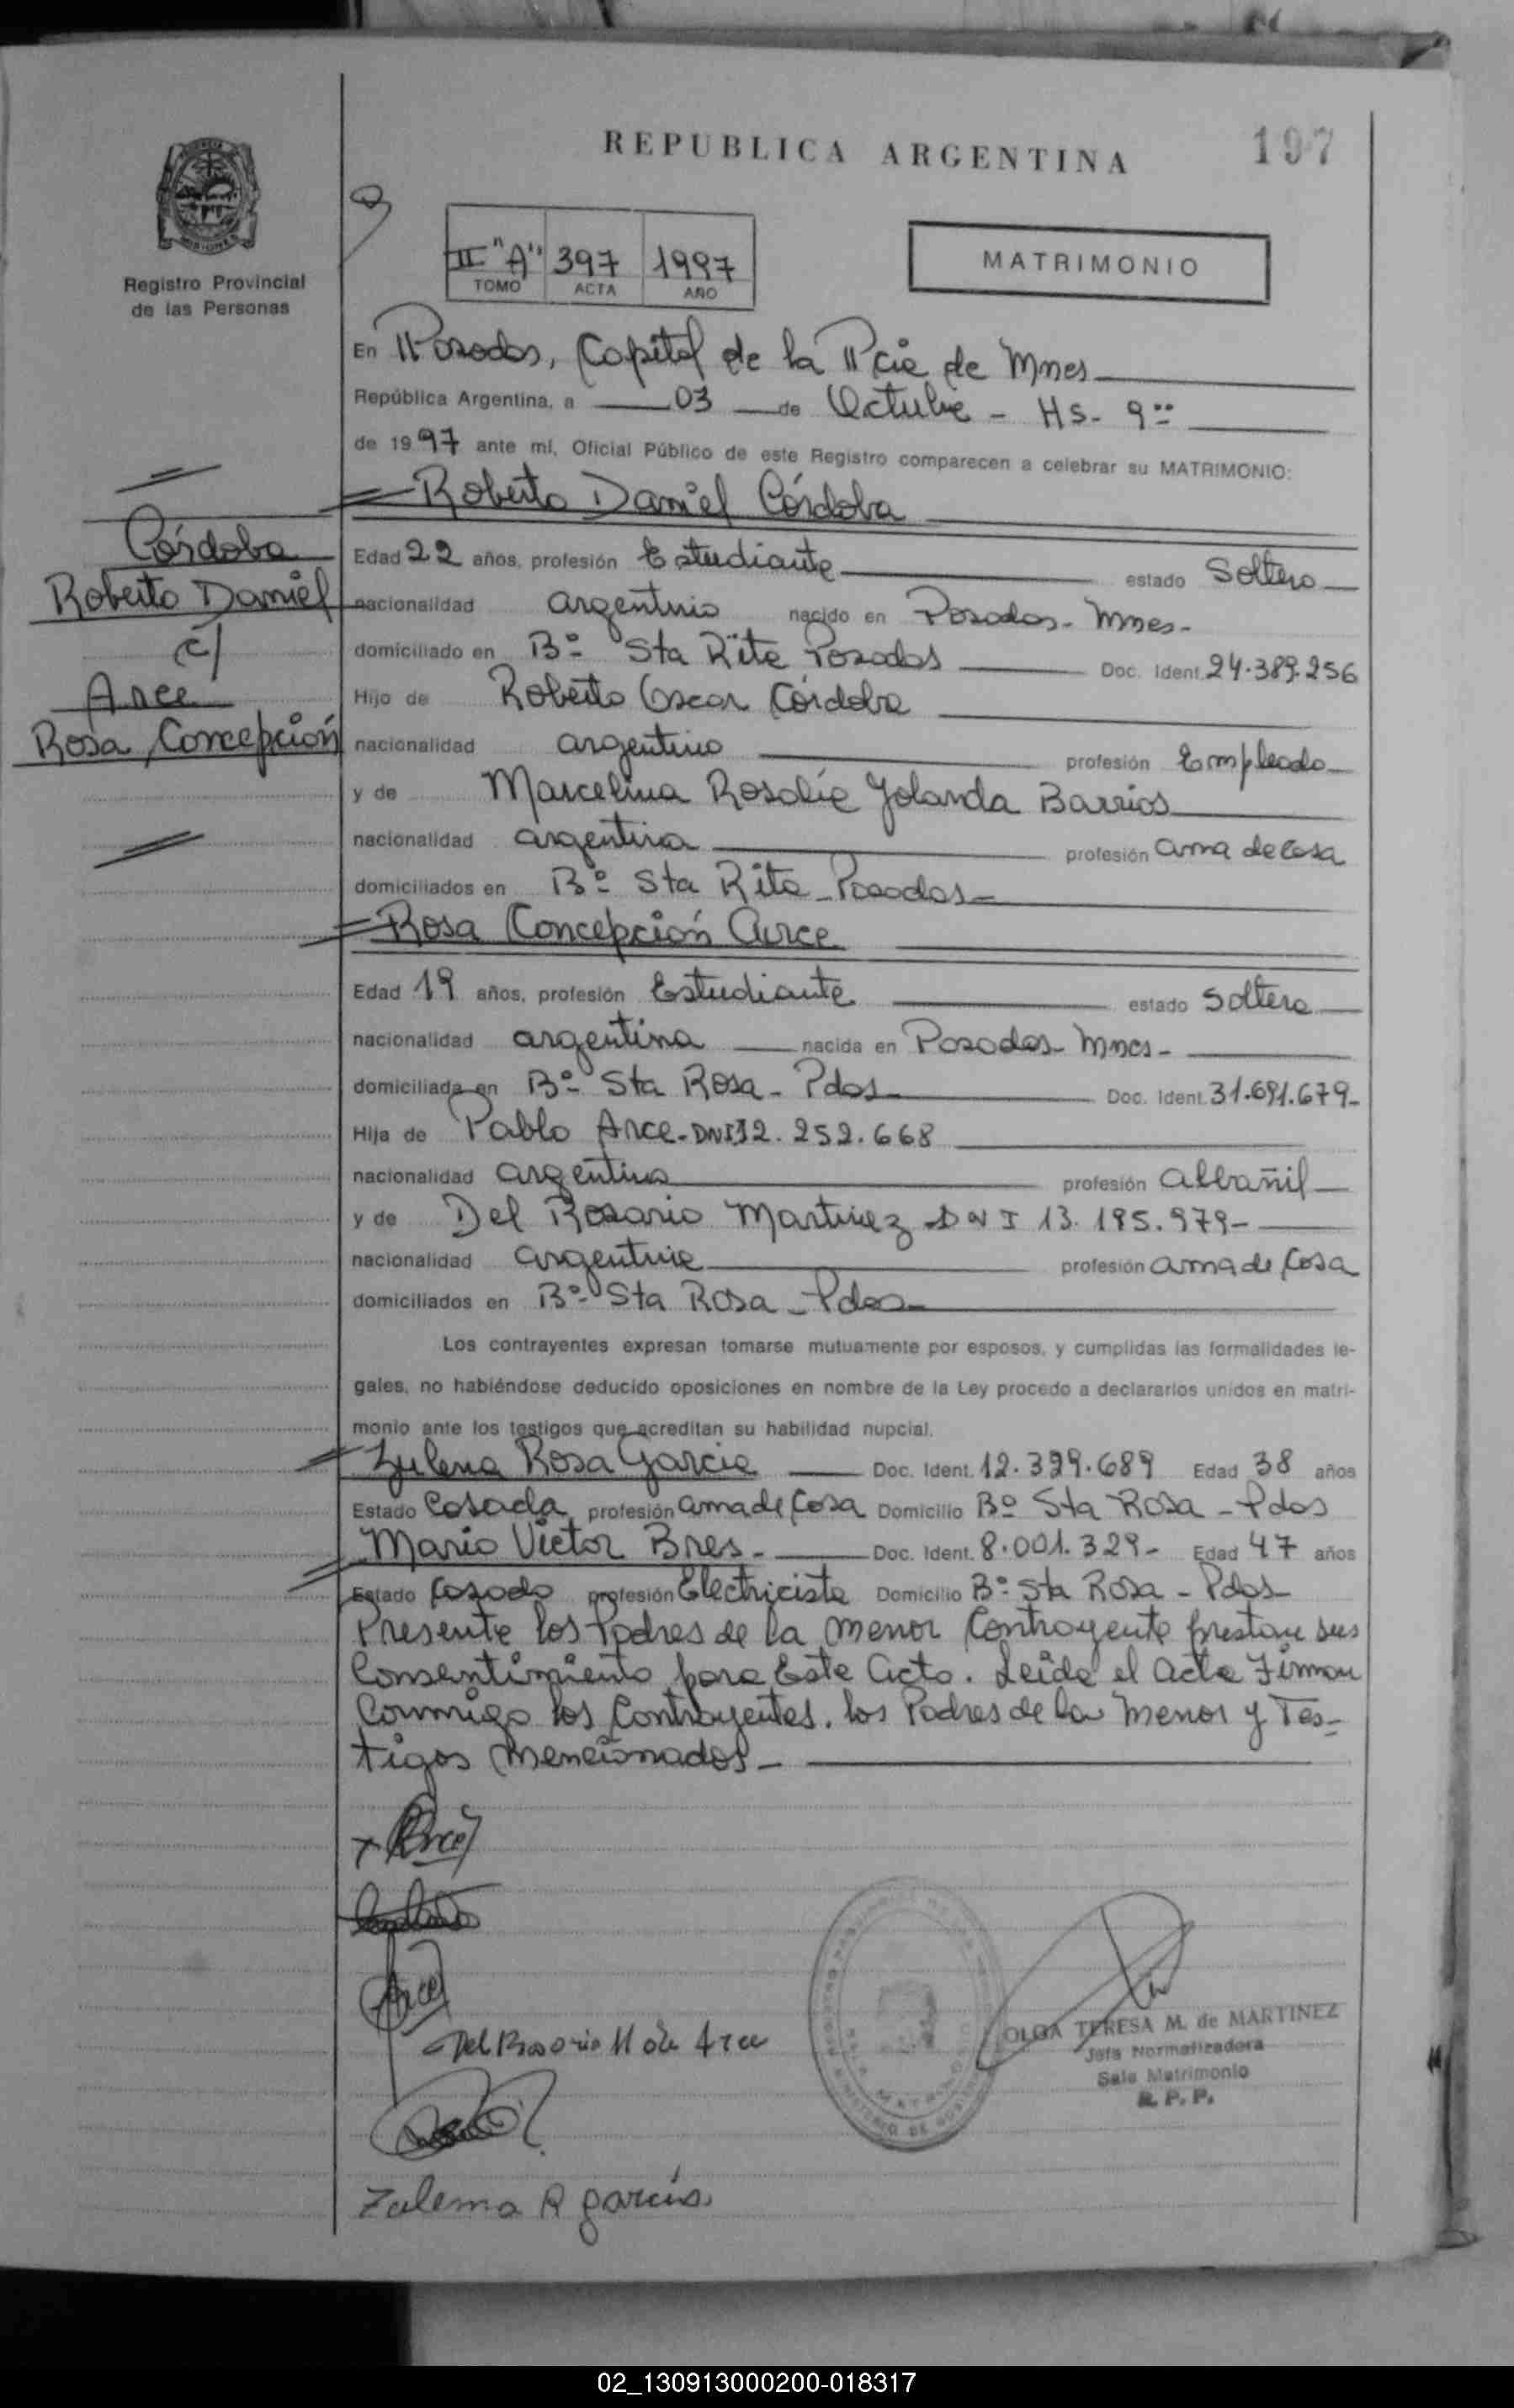 REPUBLICA ARGENTINA
197
Registro Provincial
de las Personas
II "A" 397 1997
TOMO ACTA AÑO
MATRIMONIO
En Posadas, Capital de la Pcia de Mnes
República Argentina, a 03 de Octubre - Hs - 9
de 1997 ante mí, Oficial Público de este Registro comparecen a celebrar su MATRIMONIO:
Roberto Daniel Córdoba
Córdoba
Roberto Daniel
c/
Arce
Rosa Concepción
Edad 22 años, profesión Estudiante estado Soltero
nacionalidad argentino nacido en Posadas - Mnes -
domiciliado en Bº Sta Rita Posadas Doc. Ident. 24.389.256
Hijo de Roberto Oscar Córdoba
nacionalidad argentino profesión Empleado
y de Marcelina Rosalía Yolanda Barrios
nacionalidad argentina profesión ama de casa
domiciliados en Bº Sta Rita - Posadas -
Rosa Concepción Arce
Edad 19 años, profesión Estudiante estado Soltera
nacionalidad argentina nacida en Posadas - Mnes -
domiciliada en Bº Sta Rosa - Pdas - Doc. Ident. 31.691.679 -
Hija de Pablo Arce - DNI 12.252.668
nacionalidad argentino profesión albañil
y de Del Rosario Martinez - DNI 13.195.979 -
nacionalidad argentina profesión ama de casa
domiciliados en Bº Sta Rosa - Pdas -
Los contrayentes expresan tomarse mutuamente por esposos, y cumplidas las formalidades le-
gales, no habiéndose deducido oposiciones en nombre de la Ley procedo a declararlos unidos en matri-
monio ante los testigos que acreditan su habilidad nupcial.
Zulema Rosa Garcia Doc. Ident. 12.399.689 Edad 38 años
Estado Casada profesión ama de casa Domicilio Bº Sta Rosa - Pdas
Mario Victor Bres - Doc. Ident. 8.001.329 - Edad 47 años
Estado Casado profesión Electricista Domicilio Bº Sta Rosa - Pdas -
Presente los Padres de la menor Contrayente prestan sus
Consentimiento para Este Acto. Leída el acta Firman
Conmigo los Contrayentes, los Padres de la menor y Tes-
tigos mencionados -
Arce
Arce
Del Rosario M de Arce
OLGA TERESA M. de MARTINEZ
Jefa Normalizadora
Sala Matrimonio
R. P. P.
Zulema R garcia
02_130913000200-018317